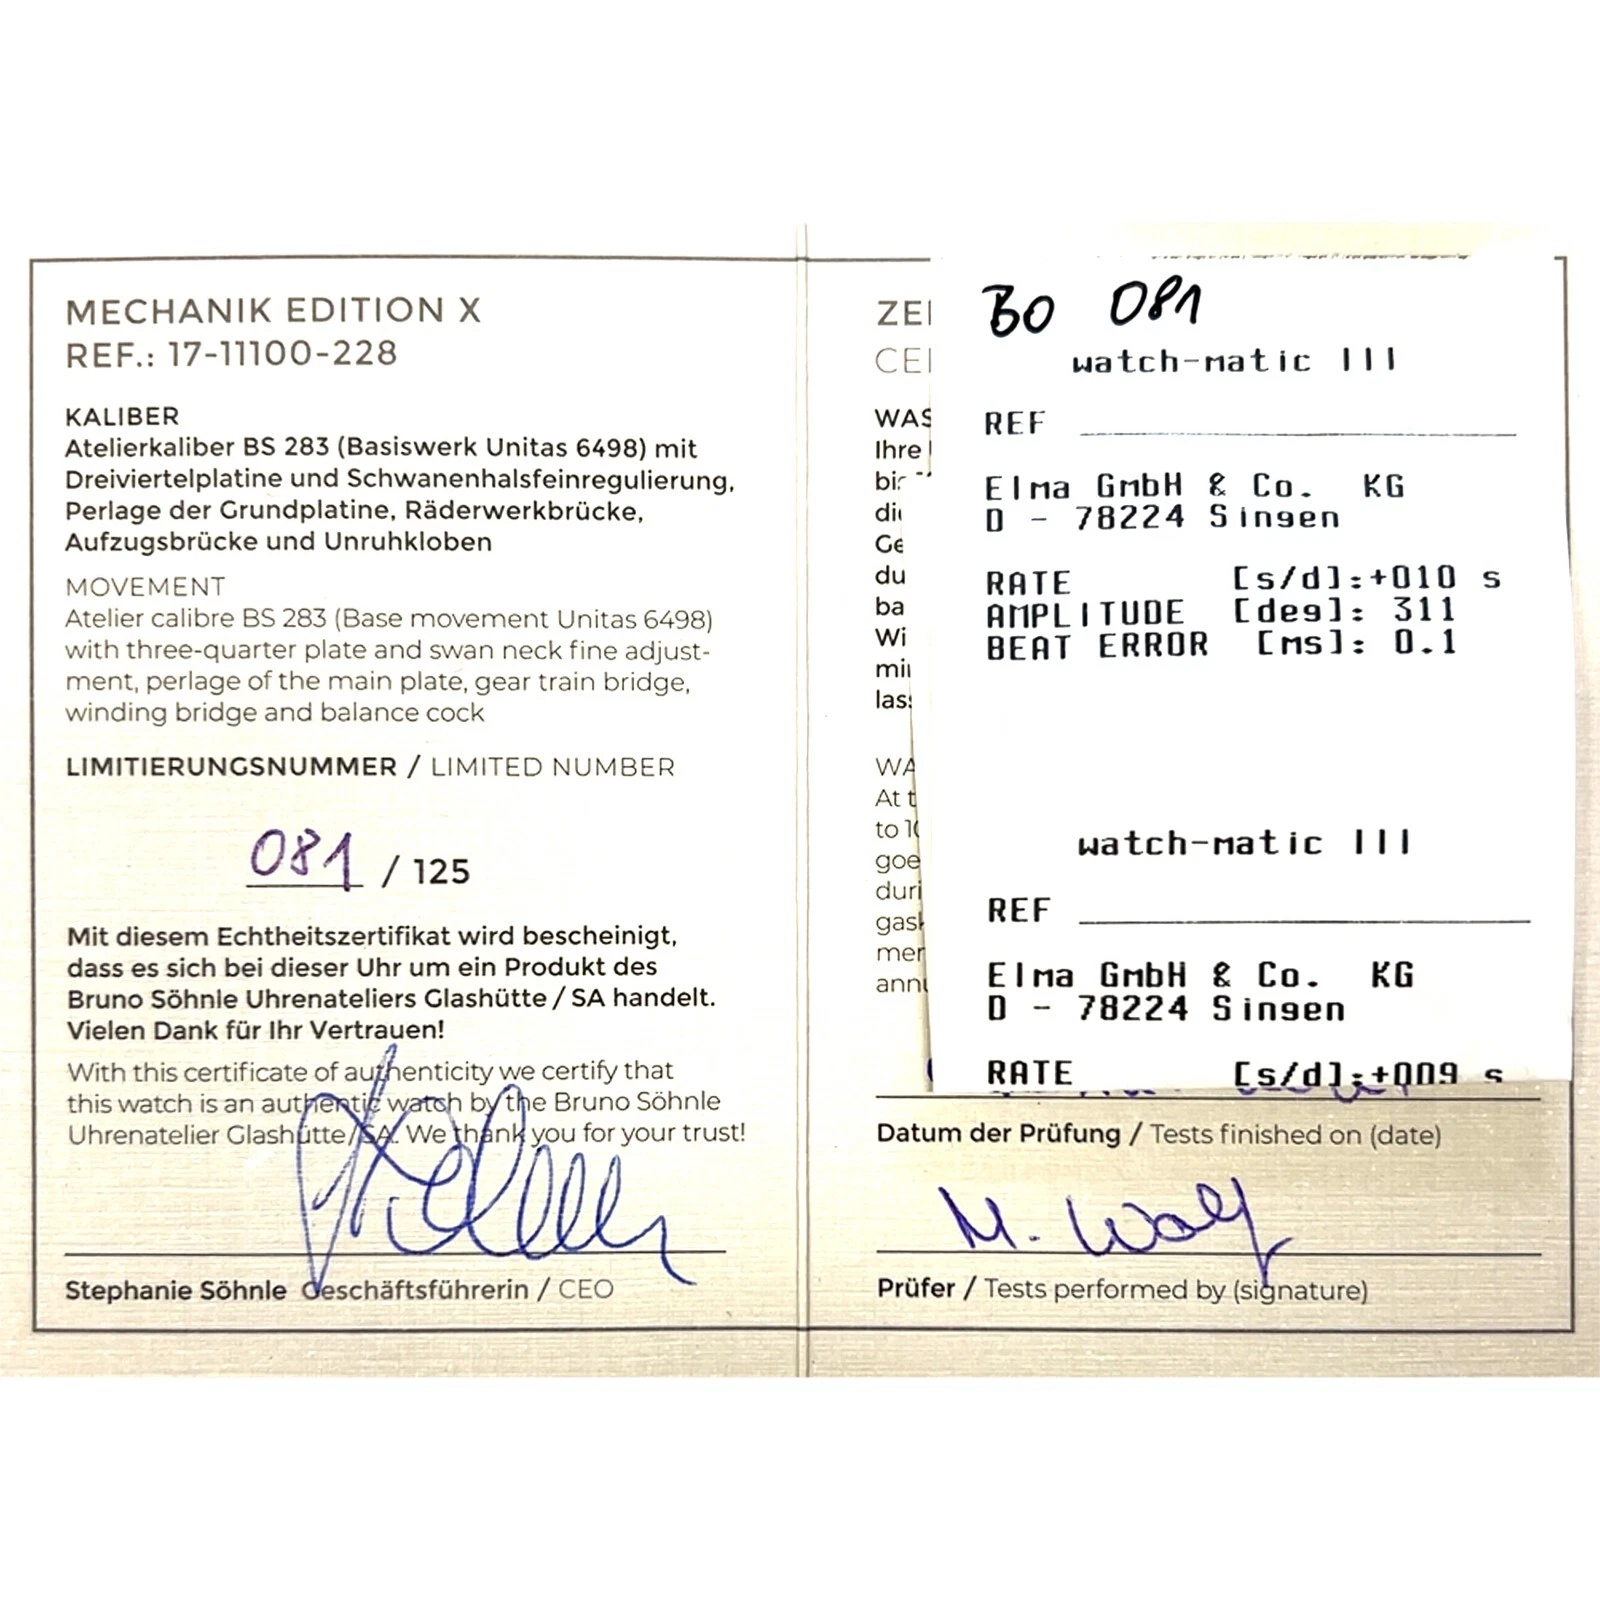 MECHANIK EDITION X
REF.: 17-11100-228
KALIBER
Atelierkaliber BS 283 (Basiswerk Unitas 6498) mit
Dreiviertelplatine und Schwanenhalsfeinregulierung,
Perlage der Grundplatine, Räderwerkbrücke,
Aufzugsbrücke und Unruhkloben
MOVEMENT
Atelier calibre BS 283 (Base movement Unitas 6498)
with three-quarter plate and swan neck fine adjust-
ment, perlage of the main plate, gear train bridge,
winding bridge and balance cock
LIMITIERUNGSNUMMER / LIMITED NUMBER
081 / 125
Mit diesem Echtheitszertifikat wird bescheinigt,
dass es sich bei dieser Uhr um ein Produkt des
Bruno Söhnle Uhrenateliers Glashütte / SA handelt.
Vielen Dank für Ihr Vertrauen!
With this certificate of authenticity we certify that
this watch is an authentic watch by the Bruno Söhnle
Uhrenatelier Glashütte/SA. We thank you for your trust!
Stephanie Söhnle Geschäftsführerin / CEO
Ihre
du
ba
Wi
At t
goe
duri
BO 081
watch-matic III
REF
Elma GmbH & Co. KG
D - 78224 Singen
RATE [s/d]:+010 s
AMPLITUDE [deg]: 311
BEAT ERROR [ms]: 0.1
watch-matic III
REF
Elma GmbH & Co. KG
D - 78224 Singen
RATE [s/d]:+009 s
Datum der Prüfung / Tests finished on (date)
M. Wolf
Prüfer / Tests performed by (signature)